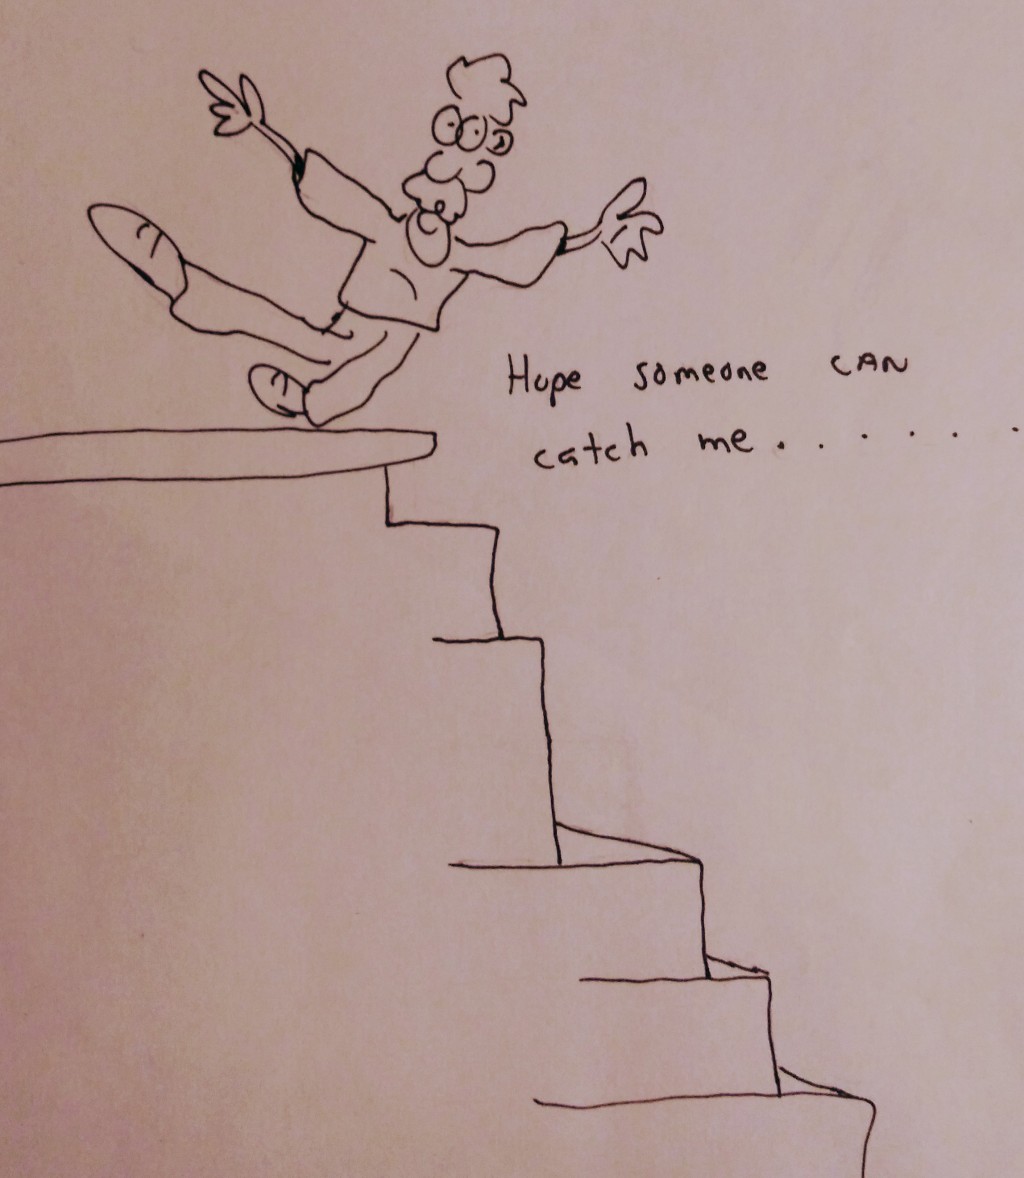 Hope someone CAN
catch me......